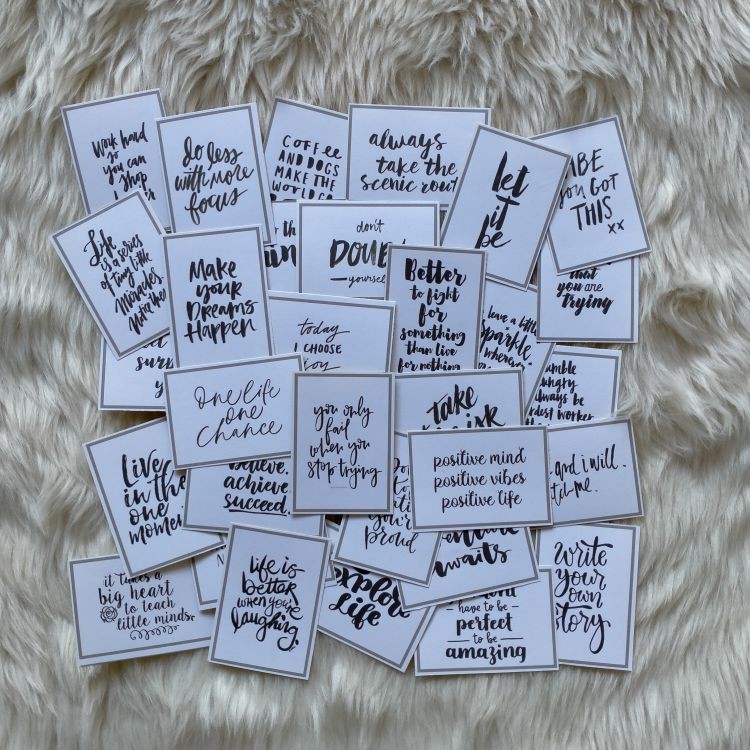 work hard
so
you can
shop
do less
with more
focus
COFFEE
AND DOGS
MAKE THE
WORLD GO
always
take the
scenic rout
let
it
be
BABE
you GOT
THIS
xx
Life
is a series
of tiny little
Miracles.
Notice them
Make
your
Dreams
Happen
don't
DOUBT
yourself
Better
to fight
for
something
than live
for nothing
that
you are
trying
today
I CHOOSE
joy
have a little
sparkle
wherever
surp
y
one life
one
chance
you only
fail
when you
stop trying
take
the risk
humble
hungry
always be
hardest worker
positive mind
positive vibes
positive life
and i will.
watch me.
Live
in the
one
moment
believe.
achieve.
succeed.
you're
proud
adventure
awaits
write
your
own
story
it takes a
big heart
to teach
little minds
life is
better
when you're
laughing.
explore
life
have to be
perfect
to be
amazing